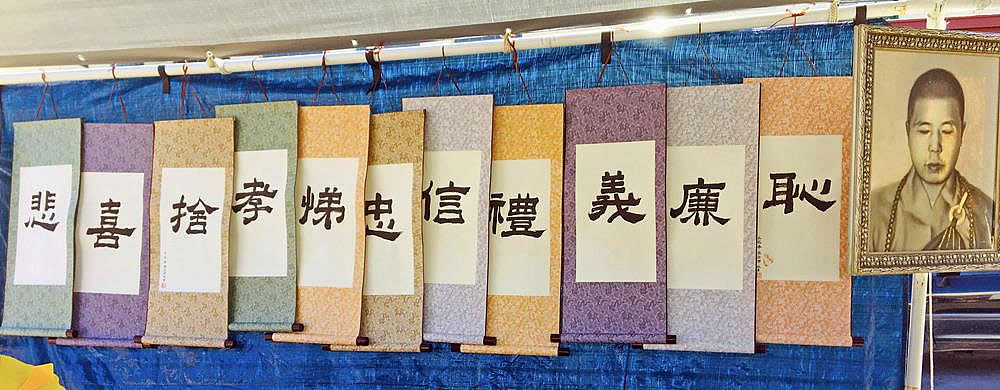 悲
喜
捨
孝
悌
忠
信
禮
義
廉
恥